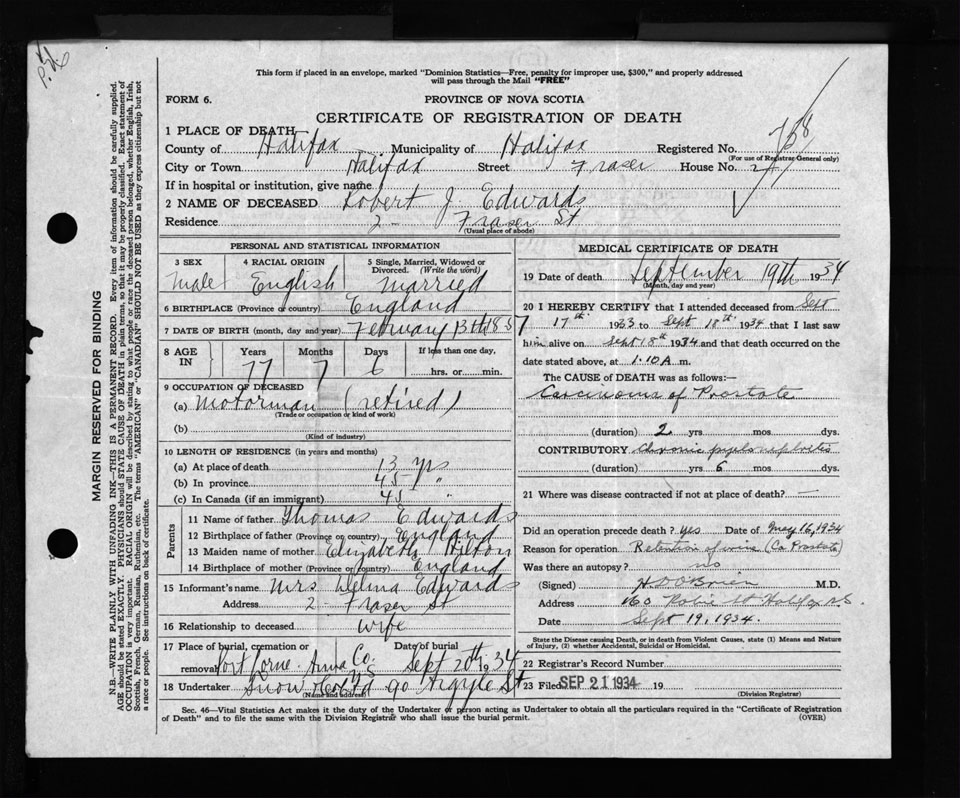 This form if placed in an envelope, marked "Dominion Statistics—Free, penalty for improper use, $300," and properly addressed
will pass through the Mail "FREE"
FORM 6.
PROVINCE OF NOVA SCOTIA
CERTIFICATE OF REGISTRATION OF DEATH
1 PLACE OF DEATH
County of Halifax Municipality of Halifax Registered No.
(For use of Registrar General only)
City or Town Halifax Street Fraser House No. 2
If in hospital or institution, give name
2 NAME OF DECEASED Robert J. Edwards
Residence 2 - Fraser St
(Usual place of abode)
PERSONAL AND STATISTICAL INFORMATION
3 SEX 4 RACIAL ORIGIN 5 Single, Married, Widowed or
Divorced. (Write the word)
Male English married
6 BIRTHPLACE (Province or country) England
7 DATE OF BIRTH (month, day and year) Feruary 13th 1857
8 AGE IN Years Months Days If less than one day,
77 7 6 hrs. or min.
9 OCCUPATION OF DECEASED
(a) Motorman (retired)
(Trade or occupation or kind of work)
(b)
(Kind of industry)
10 LENGTH OF RESIDENCE (in years and months)
(a) At place of death 13 yrs
(b) In province 45 "
(c) In Canada (if an immigrant) 45 "
Parents
11 Name of father Thomas Edwards
12 Birthplace of father (Province or country) England
13 Maiden name of mother Elizabeth Hilton
14 Birthplace of mother (Province or country) England
15 Informant's name Mrs Edwards
Address 2 - Fraser St
16 Relationship to deceased wife
17 Place of burial, cremation or Date of burial
removal Port Lorne Anna Co. N.S Sept 20th 1934
18 Undertaker Snow & Co Ltd 90 Argyle St
(Name and address)
MEDICAL CERTIFICATE OF DEATH
19 Date of death September 19th 1934
(Month, day and year)
20 I HEREBY CERTIFY that I attended deceased from Sept
17th 1933 to Sept 18th 1934 that I last saw
him alive on Sept 18th 1934 and that death occurred on the
date stated above, at 1.10 A. m.
The CAUSE OF DEATH was as follows:—
Carcinoma of Prostate
(duration) 2 yrs mos dys.
CONTRIBUTORY Chronic pyelo nephritis
(duration) yrs 6 mos. dys.
21 Where was disease contracted if not at place of death? —
Did an operation precede death? yes Date of May 16, 1934
Reason for operation Retention of urine (Ca Prostate)
Was there an autopsy? no
(Signed) H D O'Brien M.D.
Address 160 Robie St Halifax N.S.
Date Sept 19, 1934.
State the Disease causing Death, or in death from Violent Causes, state (1) Means and Nature
of Injury, (2) whether Accidental, Suicidal or Homicidal.
22 Registrar's Record Number
23 Filed SEP 21 1934 19
(Division Registrar)
Sec. 46—Vital Statistics Act makes it the duty of the Undertaker or person acting as Undertaker to obtain all the particulars required in the "Certificate of Registration
of Death" and to file the same with the Division Registrar who shall issue the burial permit.
(OVER)
MARGIN RESERVED FOR BINDING
N.B.—WRITE PLAINLY WITH UNFADING INK—THIS IS A PERMANENT RECORD. Every item of information should be carefully supplied.
AGE should be stated EXACTLY. PHYSICIANS should STATE CAUSE OF DEATH in plain terms, so that it may be properly classified. Exact statement of
OCCUPATION is very important. RACIAL ORIGIN will be described by stating to what people or race the deceased person belonged, whether English, Irish,
Scottish, French, German, Russian, Ruthenian, etc. The terms "AMERICAN" or "CANADIAN" SHOULD NOT BE USED as they express citizenship but not
a race or people. See instructions on back of certificate.